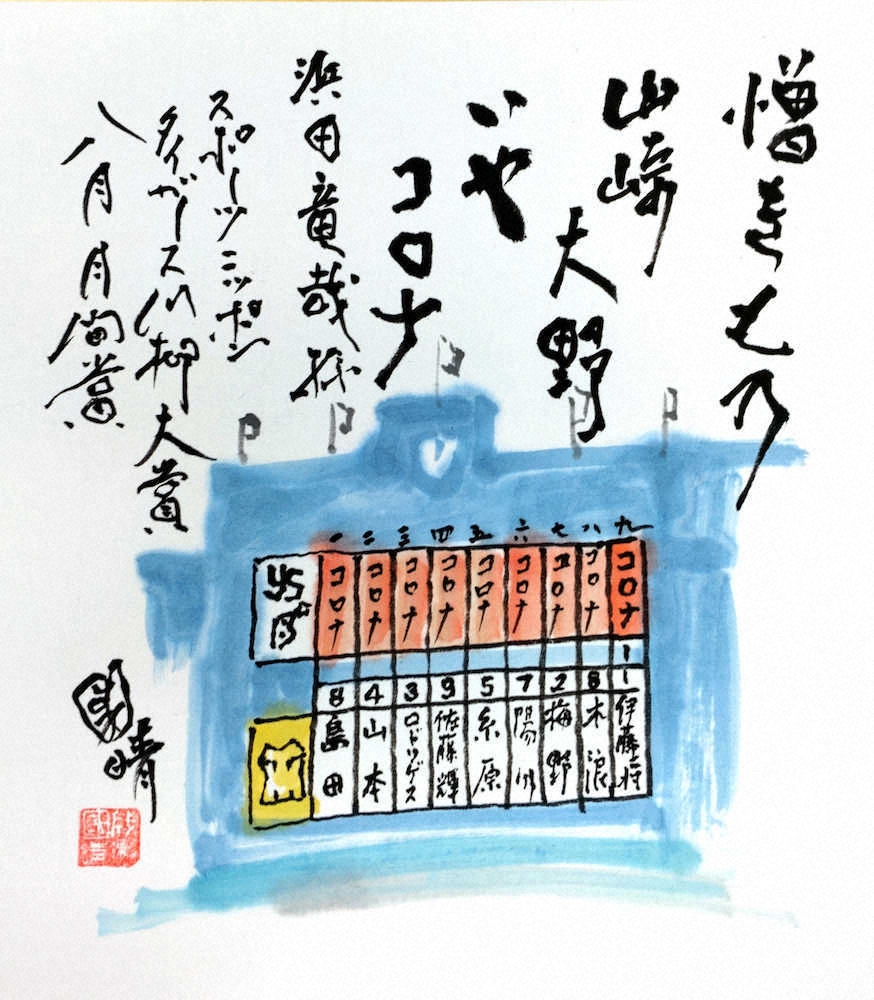 憎きもの
山崎
大野
いや
コロナ
浜田竜哉様
スポーツニッポン
タイガース川柳大賞
八月月間賞
一 二 三 四 五 六 七 八 九
コロナ コロナ コロナ コロナ コロナ コロナ コロナ コロナ コロナ
8 4 3 9 5 7 2 8 1
島田 山本 ロドリゲス 佐藤輝 糸原 陽川 梅野 木浪 伊藤将
國晴